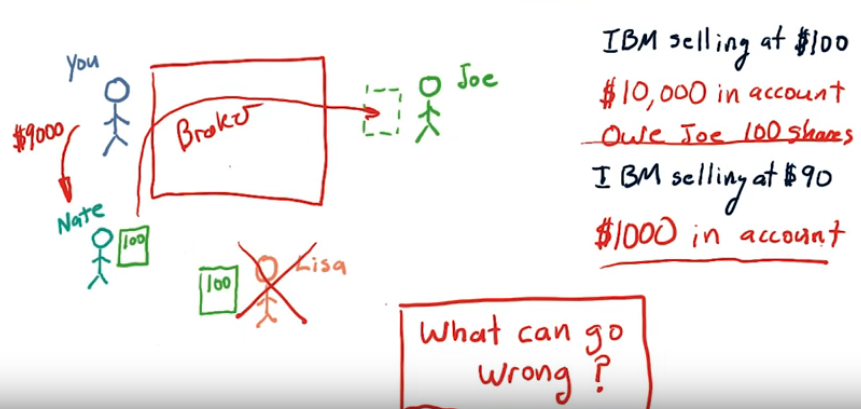 You
$9000
Broker
Joe
Nate
100
100
Lisa
IBM selling at $100
$10,000 in account
Owe Joe 100 shares
IBM selling at $90
$1000 in account
What can go
wrong?